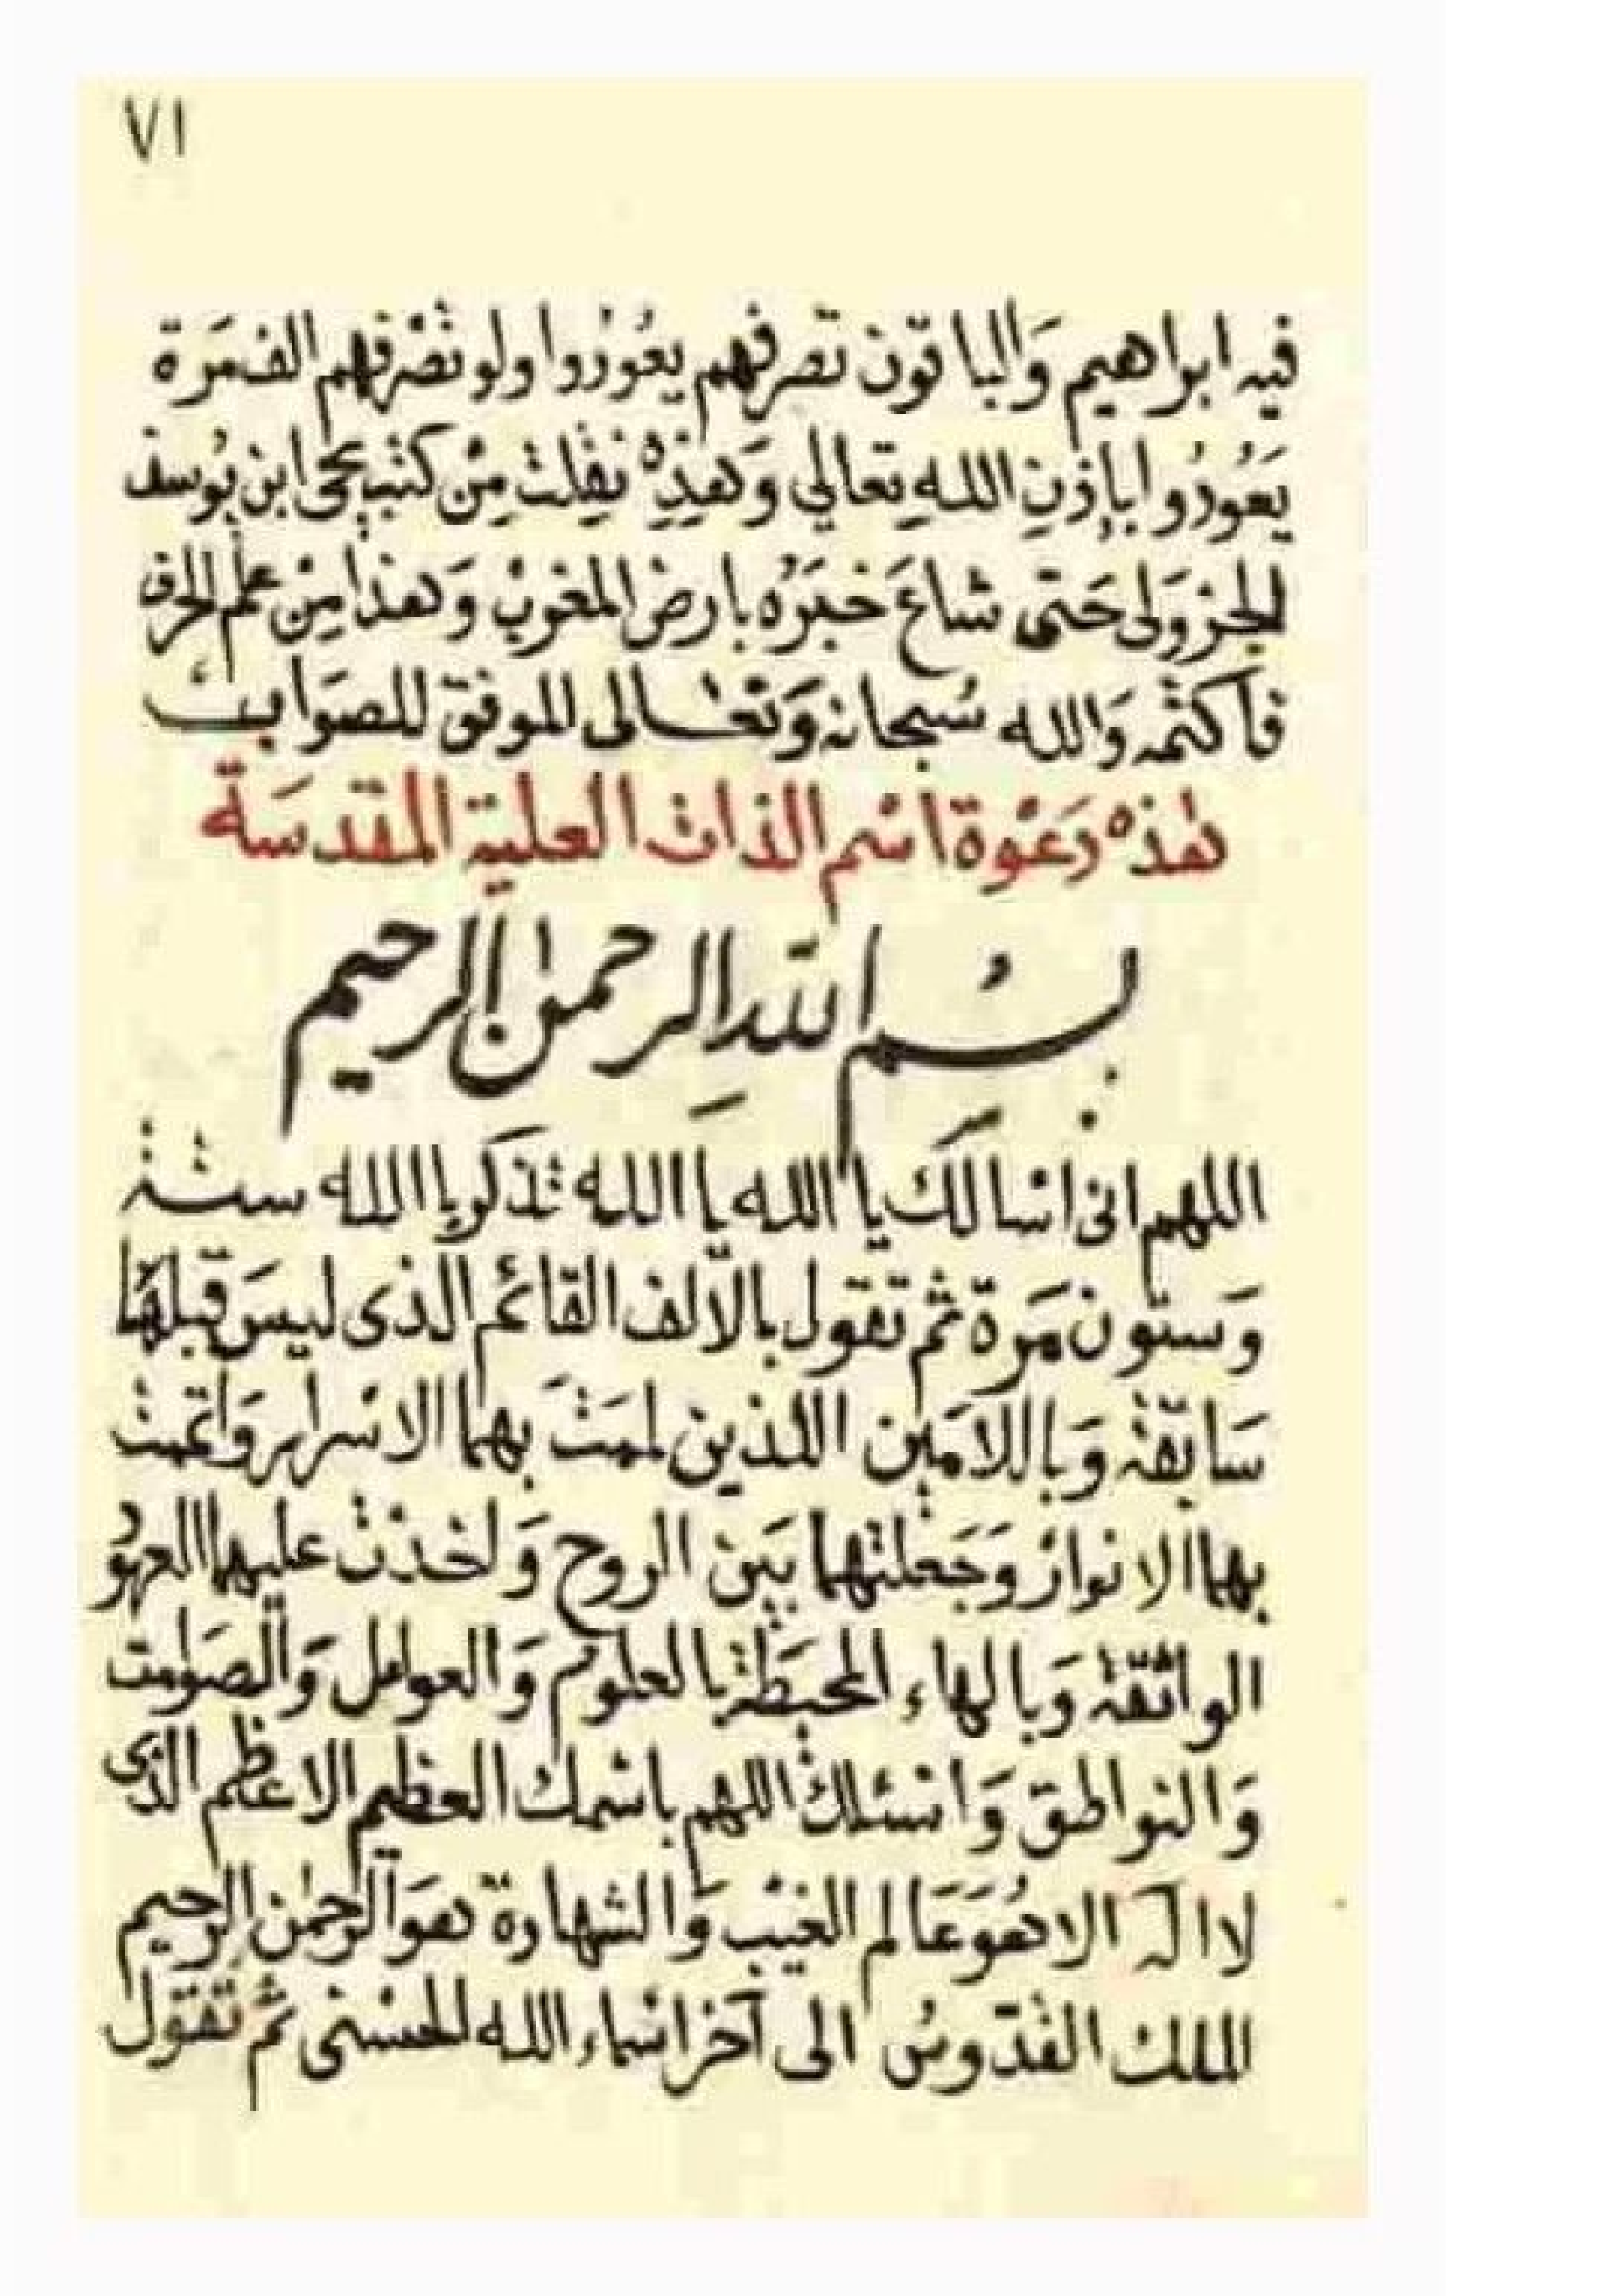 ٧١
فيه ابراهيم وَالباقون تصرفهم يعُودُوا ولو تصْرفهم الف مَرة
يَعُودُوا بإذنِ اللهِ تعالي وَهذِهْ نقِلت مِنْ كتب يحيى ابن يُوسف
الجزولى حَتى شاعَ خبَرُه بارض المغرب وَهذا مِنْ علم الحرف
فأكتمه وَالله سُبحانه وَتعَالى الموفق للصوَاب
هذه دَعْوة اسْم الذات العلية المقدسَة
بسْم اللهِ الرحمن الرحيم
اللهم انى اسْالكَ يا الله يا الله تذكر يا الله ستة
وَستون مَرة ثم تقول بالألف القائم الذى ليسَ قبلهَا
سَابقة وَباللامَين اللذين لممَتَ بهما الاسْرار وَاتممت
بهما الانوار وَجَعلتهما بَين الروح وَاخذت عليهما العهُو
الواثقة وَبالهاء المحيَطة بالعلوم وَالعوامل وَالصوَامت
وَالنواطق وَاسئلك اللهم باسْمك العظيم الاعظم الذى
لا اله الا هُوَ عَالم الغيْب وَالشهادة هوَ الرحمٰن الرحيم
الملك القدّوسُ الى آخر اسْماء الله الحسْنى ثم تقول